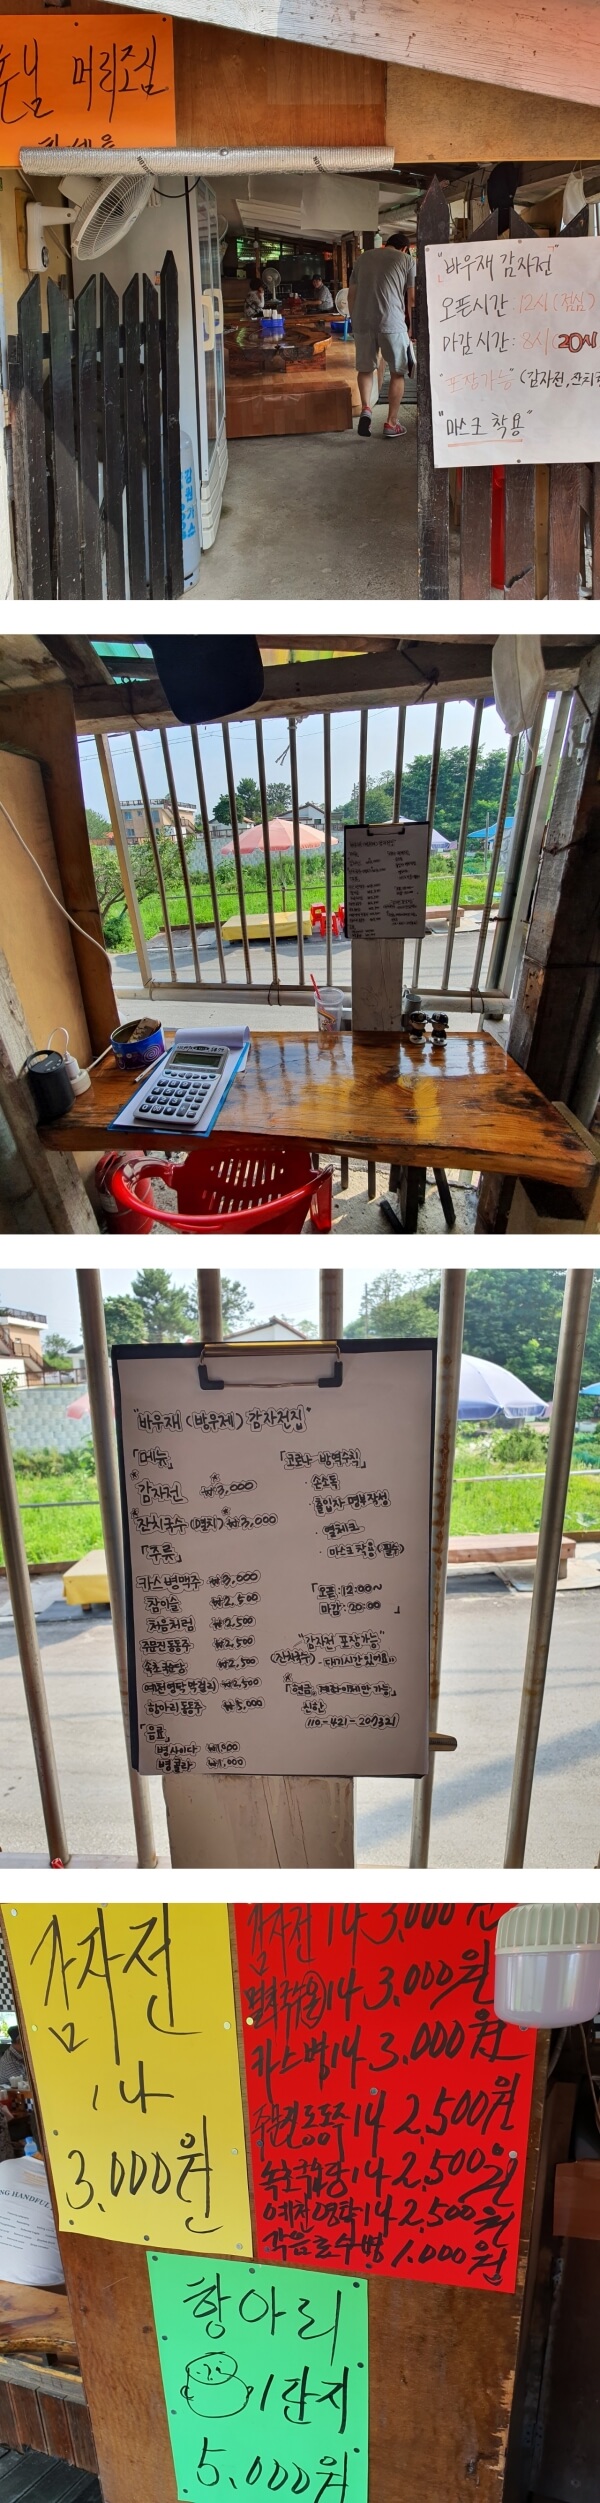 손님 머리조심
하세요
"바우재 감자전"
오픈시간 12시(점심)
마감시간: 8시(20시
"포장가능" (감자전, 잔치국
"마스크 착용"
강원가스
"바우재 (방우제) 감자전집"
「메뉴」
감자전 ₩3,000
잔치국수 (멸치) ₩3,000
「주류」
카스 병맥주 ₩3,000
참이슬 ₩2,500
처음처럼 ₩2,500
주문진 동동주 ₩2,500
속초 옥수수동동주 ₩2,500
예천 영탁 막걸리 ₩2,500
항아리 동동주 ₩5,000
「음료」
병사이다 ₩1,000
병콜라 ₩1,000
「코로나 방역수칙」
· 손소독
· 출입자 명부작성
· 열체크
· 마스크 착용(필수)
「오픈: 12:00~
마감: 20:00 」
"감자전 포장가능"
(잔치국수) - 대기시간 있어요!!
「현금, 계좌이체만 가능」
신한
110-421-207321
감자전
1나
3,000원
감자전 14 3,000원
멸치국수 14 3,000원
카스 병 14 3,000원
주문진동동주 14 2,500원
14 2,500원
예천영탁 14 2,500원
각음료수병 1,000원
항아리
1단지
5,000원